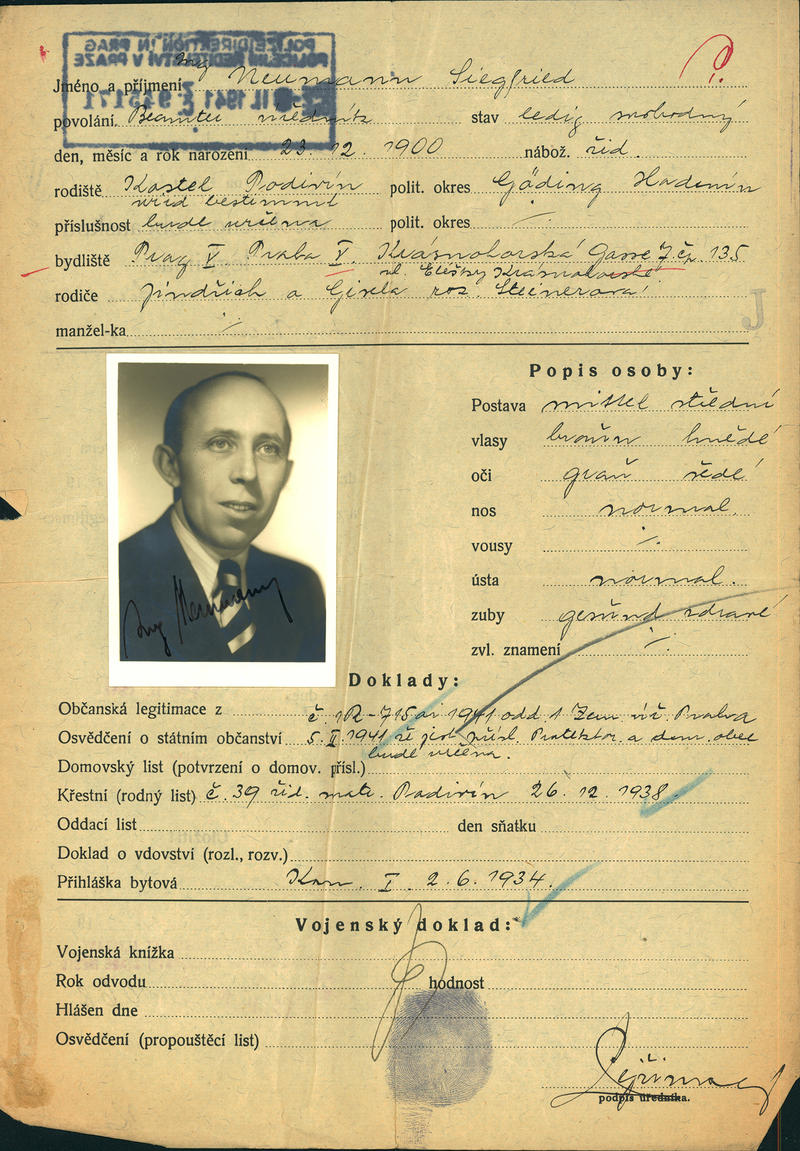 POLIZEIDIREKTION IN PRAG
POLICEJNÍ ŘEDITELSTVÍ V PRAZE
II. 1941
Jméno a příjmení Ing Neumann Siegfried
povolání Beamter úředník stav ledig svobodný
den, měsíc a rok narození 23. 12. 1900 nábož. žid.
rodiště Kostel Podivín polit. okres Göding Hodonín
wird bestimmt
příslušnost bude určena polit. okres ·/·
bydliště Prag V Praha V. Krásnohorská Gasse 7 čp. 135
ul. Elišky Krásnohorské
rodiče Jindřich a Gisela roz. Steinerová
manžel-ka ·/·
J
Popis osoby:
Postava mittel střední
vlasy braun hnědé
oči grau šedé
nos normal.
vousy ·/·
ústa normal.
zuby gesund zdravé
zvl. znamení ·/·
Ing Neumann
Doklady:
Občanská legitimace z
Osvědčení o státním občanství 5. II 1941 že jest přísl. Protektor. a dom. obec
bude určena.
Domovský list (potvrzení o domov. přísl.)
Křestní (rodný list) č. 39 žid. matr. Podivín 26. 12. 1938.
Oddací list den sňatku
Doklad o vdovství (rozl., rozv.)
Přihláška bytová Kom. I. 2. 6. 1934.
Vojenský doklad:
Vojenská knížka
Rok odvodu hodnost
Hlášen dne
Osvědčení (propouštěcí list)
podpis úředníka.